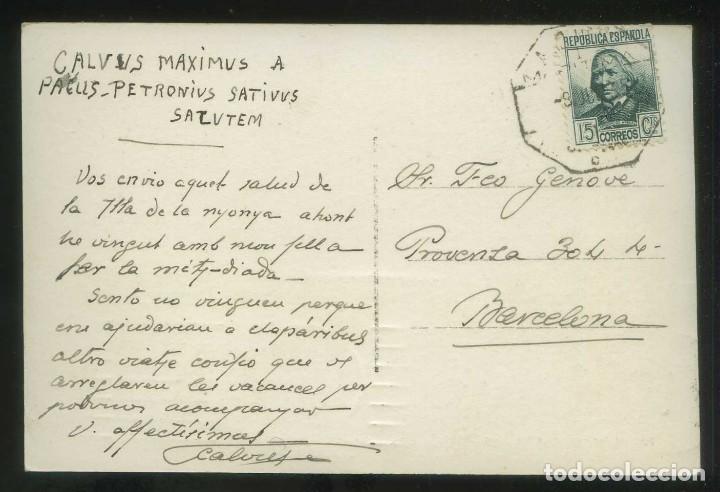 CALVUS MAXIMUS A
PAEUS-PETRONIUS SATIVUS
SALUTEM
Vos envio aquet salud de
la Illa de la nyonya ahont
he vingut amb mon fill a
fer la mitj-diada.
Sento no vingueu perque
ens ajudariau a
altro viatje confio que us
arreglareu les vacances per
podernos acompanyar
V. affectísimas
REPUBLICA ESPAÑOLA
15 CTS
CORREOS
Sr. Fco Genove
Provensa 304 4-
Barcelona
todocoleccion.net